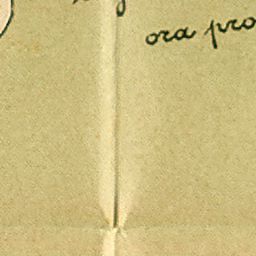 ora pro